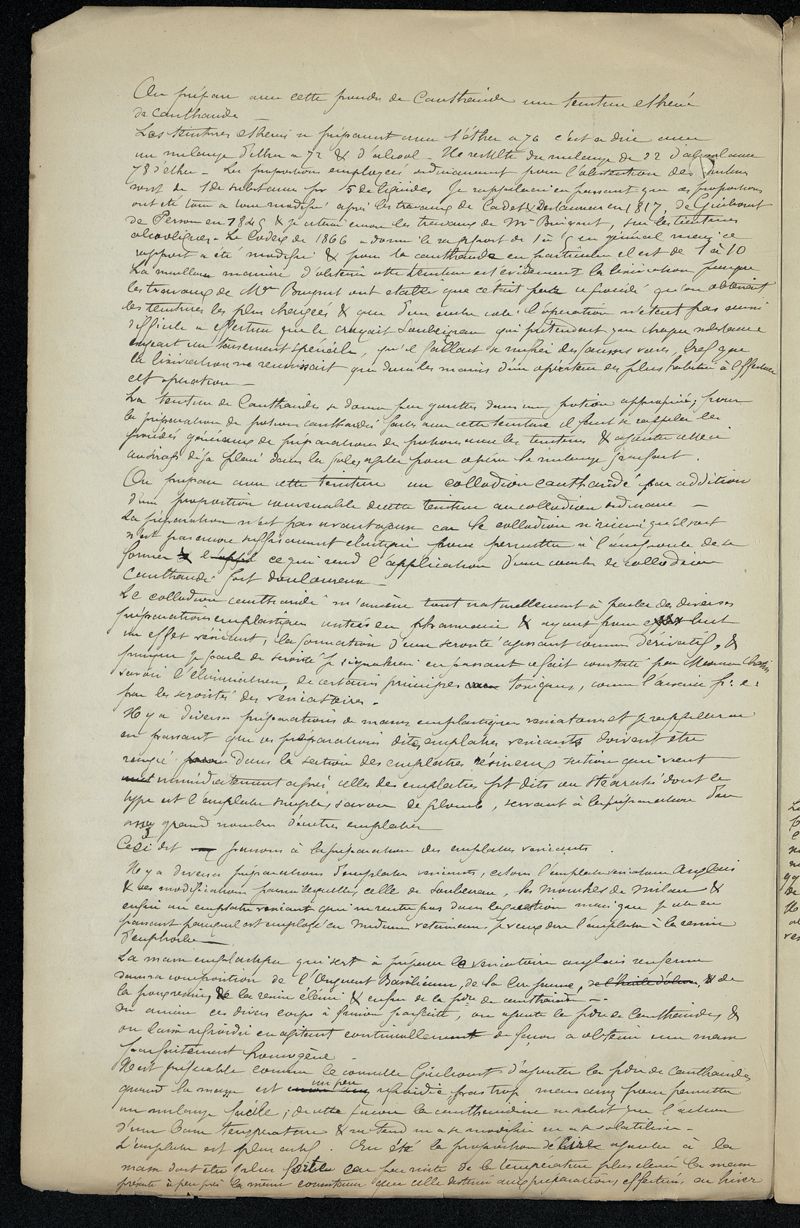 On prépare avec cette poudre de Cantharide une teinture etherée
de cantharide —
Les teintures etherées se préparent avec l'éther a 76 c'est a dire avec
un melange d'ether a 72 & d'alcool - Il resulte du melange de 22 d'alcool avec
78 d'ether - Les proportions employées ordinairement pour l'obtention des teintures
sont de 1 de substance pr 5 de liquides Je rappelerai en passant que ces proportions
ont été tour a tour modifié après les travaux de Cadet & Deslauriers en 1817, de Guibourt
de Personne en 184 & je citerai encore les travaux de Mr Buignet, sur les teintures
alcooliques - Le Codex de 1866 a donné le rapport de 1 a 5 en général mais ce
rapport a été modifié & pour la cantharide en particulier il est de 1 à 10
La meilleure manière d'obtenir cette teinture est evidemment la lixiviation puisque
les travaux de Mr Buignet ont etabli que cetait par ce procédé qu'on obtenait
les teintures les plus chargées & que d'un autre coté l'opération n'était pas aussi
difficile a effectuer que le croyait Soubeiran qui prétendait que chaque substance
exigeait un tassement special, qu'il fallait se méfier des fausses voies, bref que
la lixiviation ne reussissait que dans les mains d'un opérateur des plus habitué à l'effectuer
cette opération —
La teinture de Cantharides se donne par gouttes dans une potion appropriée; pour
la préparation de potions cantharidés faites avec cette teinture il faut se rappeler les
procédés généraux de préparations de potions avec les teintures & ajouter celle ci
au sirop déja placé dans la fiole after pour opérer le melange parfait.
On prépare avec cette teinture un collodion cantharidé par addition
d'une proportion convenable de cette teinture au collodion ordinaire —
La préparation n'est pas avantageuse car le collodion si riciné qu'il soit
n'est pas encore suffisamment elastique pour permettre à l'ampoule de se
former & l'appl ce qui rend l'application d'une couche de collodion
Cantharidé fort douloureuse —
Le collodion cantharidé m'amène tout naturellement à parler des diverses
préparations emplastiques usitées en pharmacie & ayant pour but
un effet vesicant, la formation d'une serosité agissant comme Dérivatif, &
puisque je parle de sérosité je signalerai en passant ce fait constaté par Monsieur Chatin
savoir l'élimination, de certains principes toxiques, comme l'arsenic p. e.
par les serosités des vesicatoires.
Il y a diverses préparations de masses emplastiques vesicatoires et je rappellerai
en passant que ces préparations dites emplatres vesicants doivent etre
rangées dans la section des emplatres résineux section qui vient
immédiatement après celles des emplatres prt dits ou Stéaratés dont le
type est l'emplatre simple, savon de plomb, servant à la préparation d'un
assez grand nombre d'autres emplatres
Ceci dit passons à la préparation des emplatres vesicants.
Il y a diverses préparations d'emplatres vesicants, citons l'emplatre vesicatoire Anglais
& ses modifications parmi lesquelles celle de Soubeiran, les Mouches de Milan &
enfin un emplatre vesicant qui ne rentre pas dans la question mais que je cite en
passant parcequ'il est employé en médecine veterinaire je veux dire l'emplatre à la resine
d'euphorbe —
La masse emplastique qui sert à préparer le vesicatoire anglais renferme
dans sa composition de l'Onguent Basilicum, de la cire jaune, de l'huile d'olive, & de
la poix resine, de la resine élémi & enfin de la pdre de cantharide —
On amène ces divers corps à fusion parfaite, on ajoute la pdre de Cantharides &
on laisse refroidir en agitant continuellement de façon a obtenir une masse
parfaitement homogène
Il est préférable comme le conseille Guibourt d'ajouter la pdre de Cantharides
quand la masse est un peu refroidie pas trop mais assez pour permettre
un mélange facile; de cette façon la cantharidine ne subit que l'action
d'une basse température & ne tend ni a se modifier ni a se volatiliser -
L'emplatre est plus actif. En été la proportion de cire ajoutée à la
masse doit etre plus forte car par suite de la température plus elevée la masse
présente à peu près la même consistance que celle destinée aux préparations effectuées en hiver